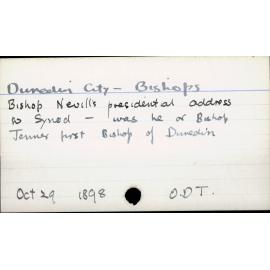 Dunedin City - Bishops
Bishop Nevill's presidential address
to Synod - was he or Bishop
Jenner first Bishop of Dunedin
Oct 29 1898 O.D.T.